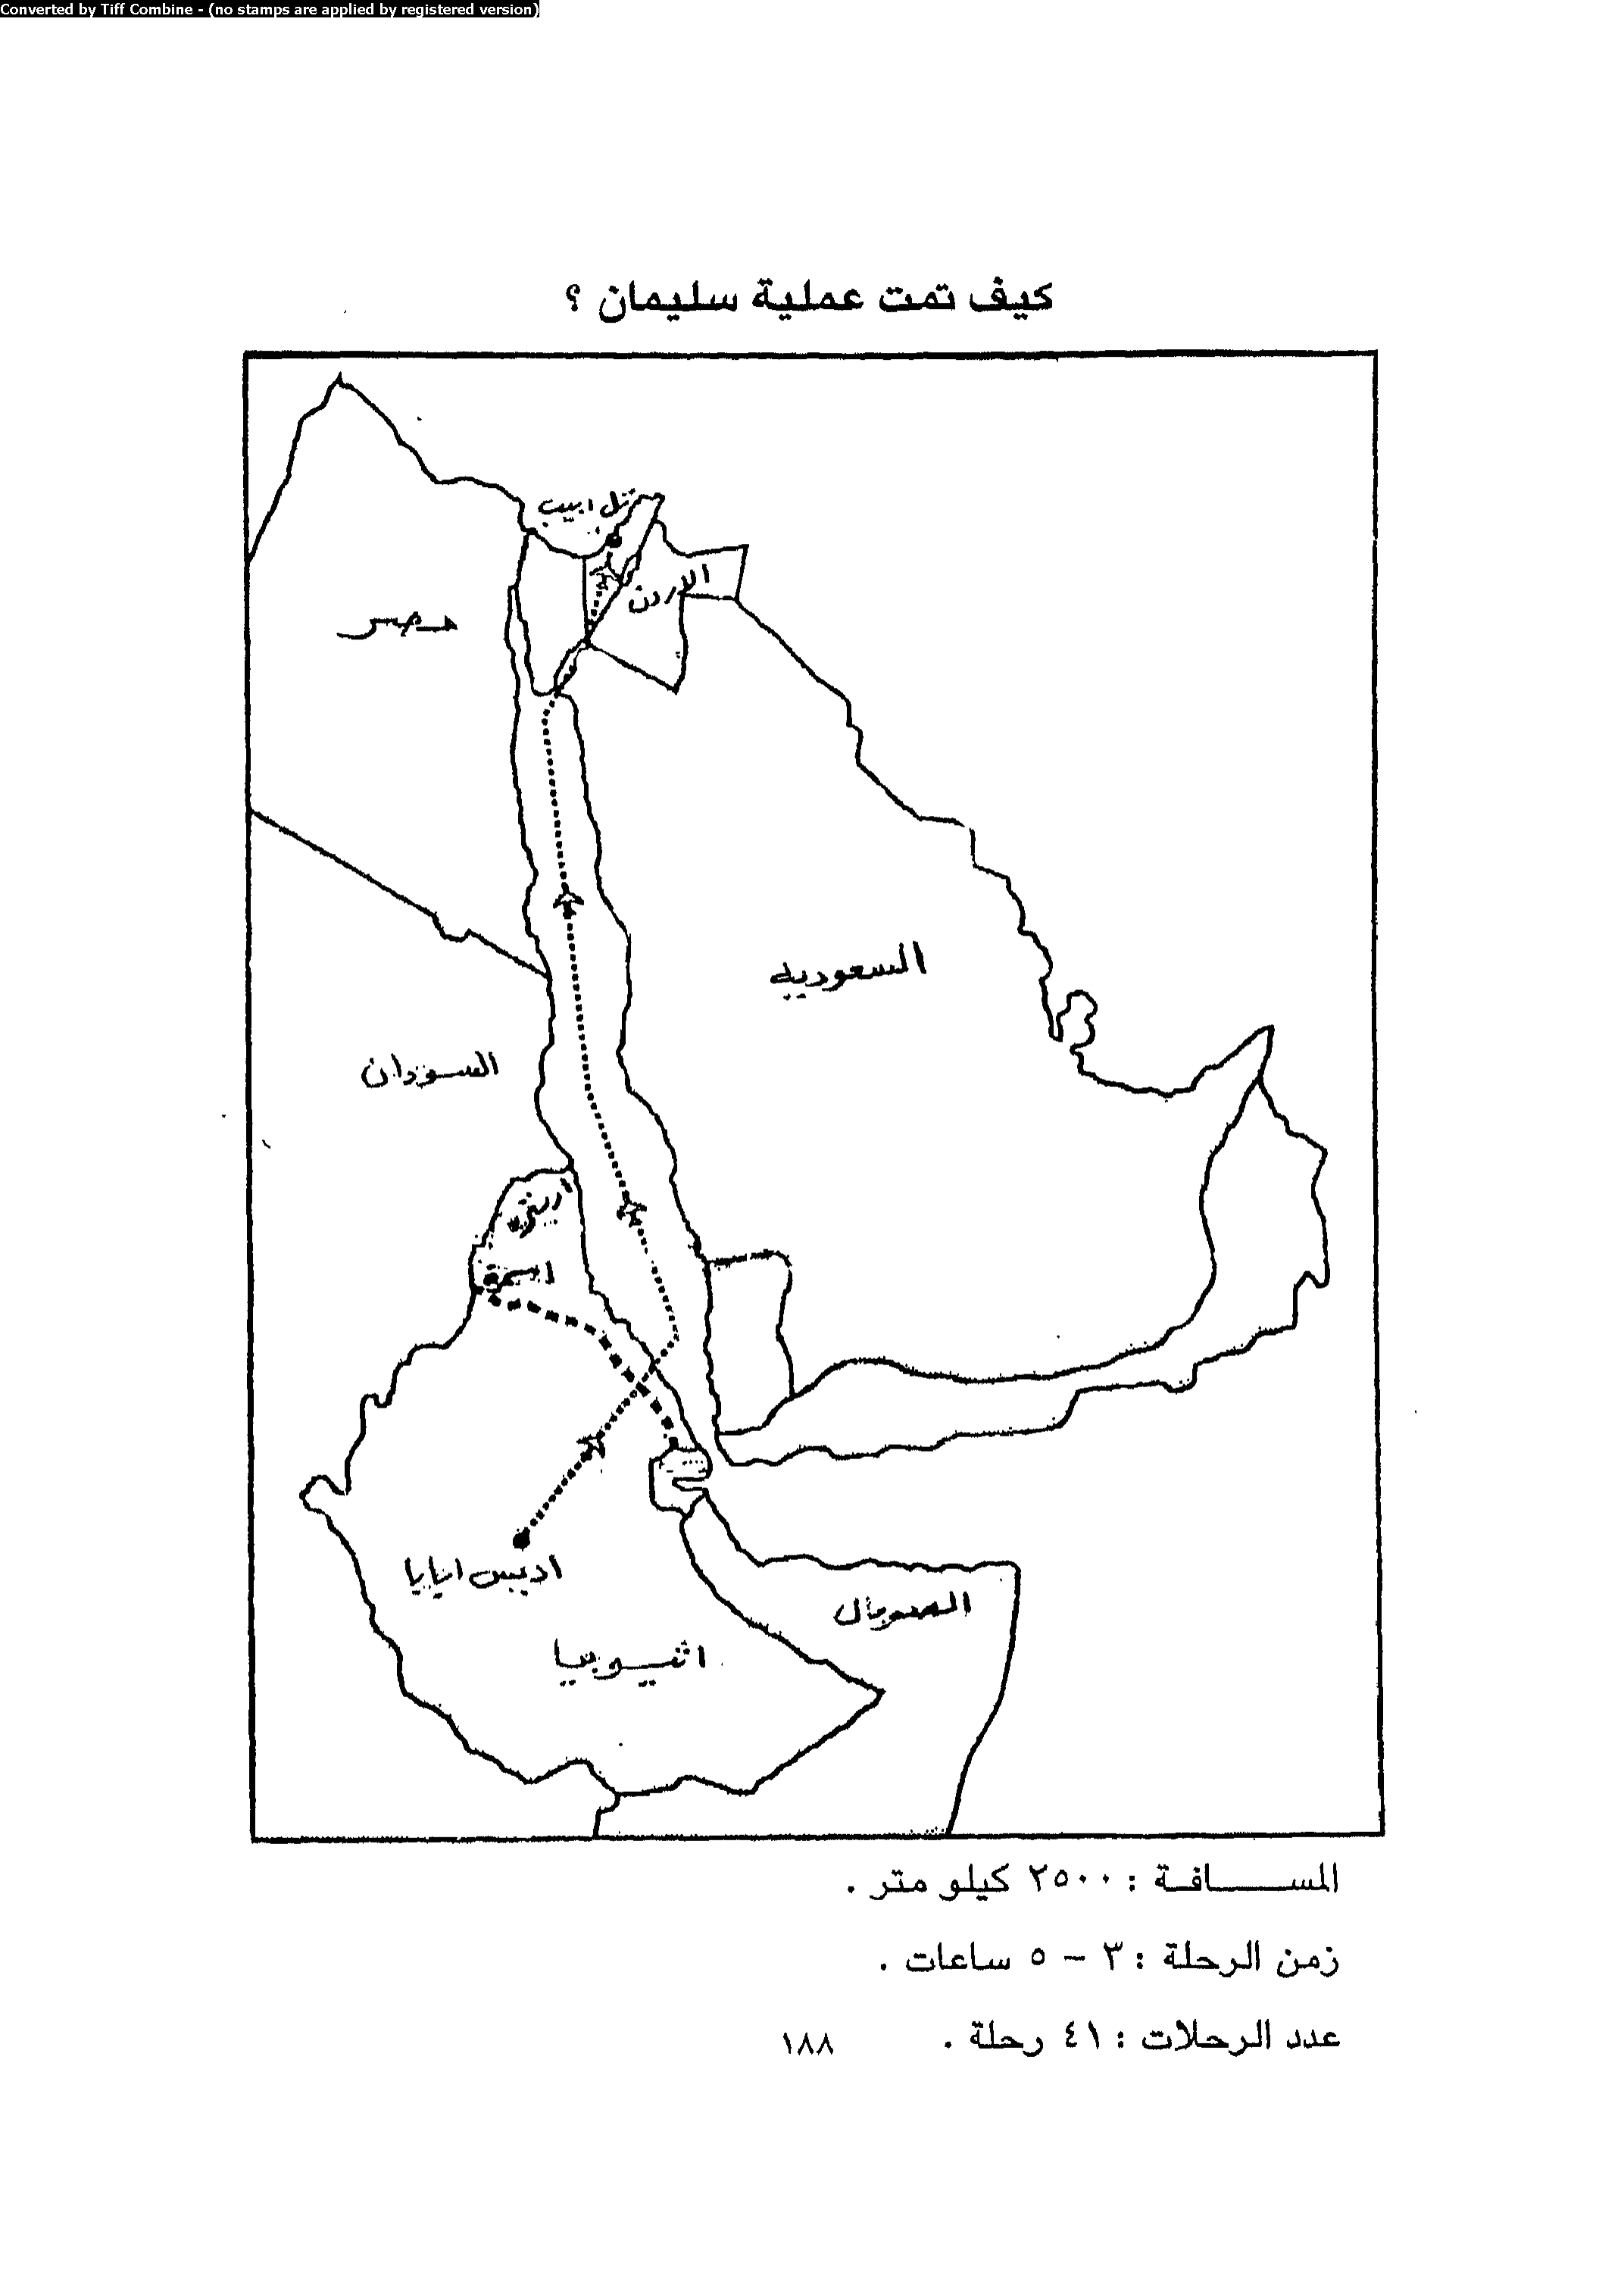 Converted by Tiff Combine - (no stamps are applied by registered version)
كيف تمت عملية سليمان ؟
تل ابيب
الاردن
مصر
السعوديه
السودان
اسمرة
اديس ابابا
الصومال
اثيوبيا
المســـــافة : ٢٥٠٠ كيلو متر .
زمن الرحلة : ٣ – ٥ ساعات .
عدد الرحلات : ٤١ رحلة .
١٨٨